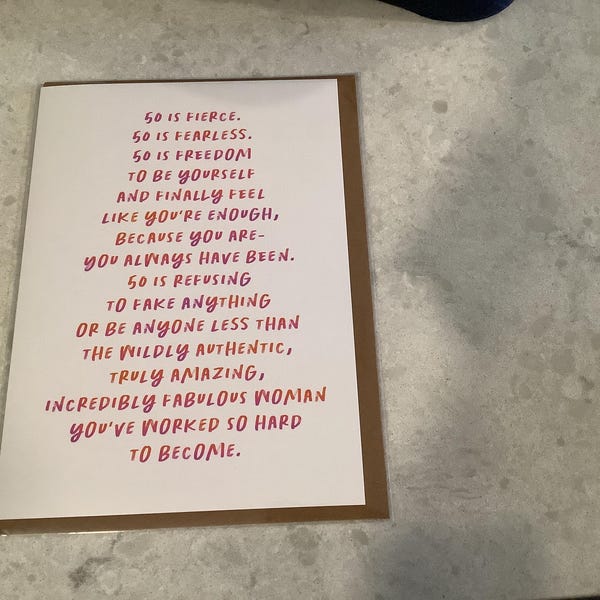 50 IS FIERCE.
50 IS FEARLESS.
50 IS FREEDOM
TO BE YOURSELF
AND FINALLY FEEL
LIKE YOU'RE ENOUGH,
BECAUSE YOU ARE-
YOU ALWAYS HAVE BEEN.
50 IS REFUSING
TO FAKE ANYTHING
OR BE ANYONE LESS THAN
THE WILDLY AUTHENTIC,
TRULY AMAZING,
INCREDIBLY FABULOUS WOMAN
YOU'VE WORKED SO HARD
TO BECOME.